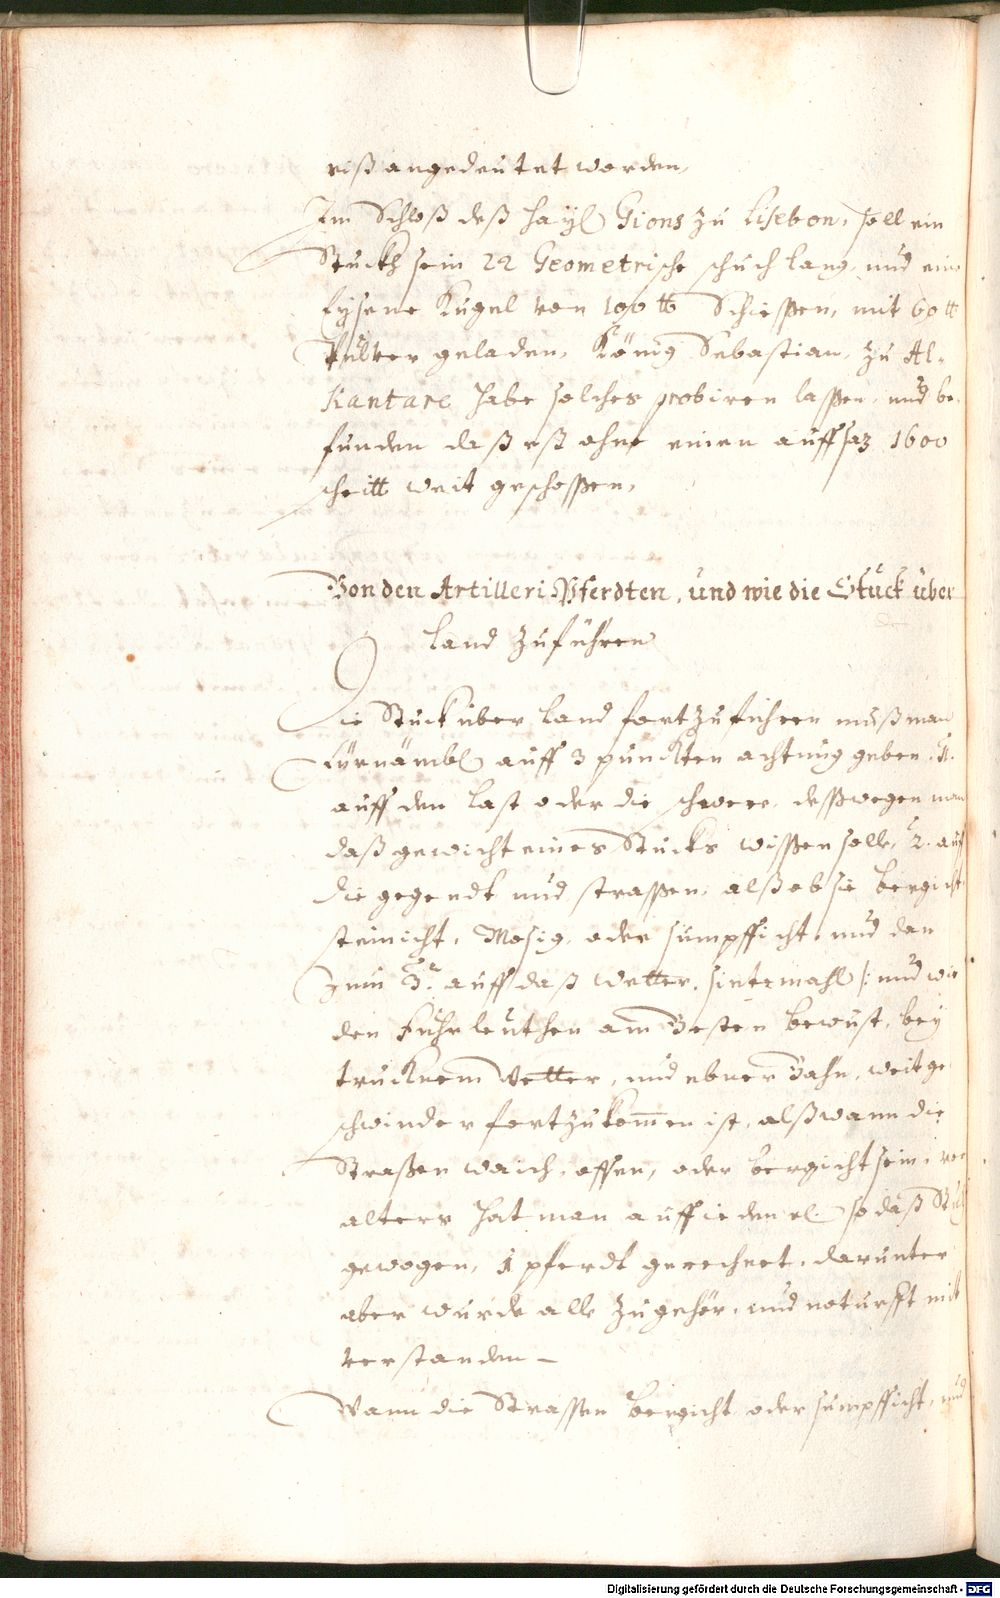 riß angedeutet worden,
Im Schloß deß Hayl Gions zu Lisebon, soll ein
Stuckh sein 22 Geometrische schuch lang, und eine
Eysene Kugel von 100 tt Schiessen, mit 60 tt
Pulver geladen, König Sebastian, zu Al-
Kantare habe solches probiren lassen, und be-
funden daß eß ohne einen auffsaz 1600
schritt weit geschossen,
Von den Artilleri Pferdten, und wie die Stuck über
land zuführen
Die Stuck über land fortzuführen muß man
fürnämbl auff 3 punckten achtung geben, 1.
auff den last oder die schwere, desswegen man
daß gewicht eines Stucks wissen solle, 2. auf
die gegendt und strassen, alß ob sie bergicht
steinicht, Mosig, oder sumpfficht, und dan
Zum 3.t auff daß wetter, sintemahl /: und wie
den Fuhrleuthen am Besten bewust, bey
trucknem Wetter, und ebner Bahn, weit ge-
schwinder fortzukommen ist, alß wann die
Straßen waich, offen, oder bergicht sein, vor
alters hat man auff ieden so daß Stuck
gewogen, 1 pferdt gerechnet, darunter
aber wurde alle zugehör, und noturfft mit
verstanden –
Wann die Strassen bergicht oder sumpfficht, und
Digitalisierung gefördert durch die Deutsche Forschungsgemeinschaft - DFG